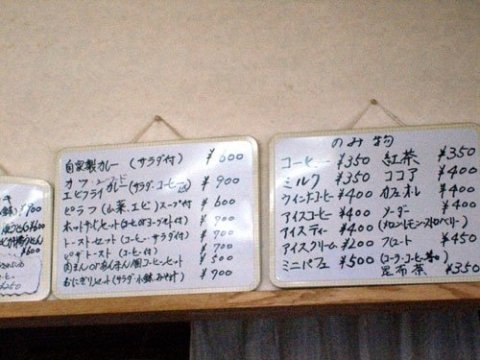 ¥700
¥600
¥600
自家製カレー（サラダ付） ¥600
エビフライカレー（サラダ・コーヒー付） ¥900
ピラフ（山菜、エビ）スープ付 ¥600
ホットサンドセット ¥700
トーストセット（コーヒー・サラダ付） ¥700
ピザトースト（コーヒー付） ¥700
肉まんorあんまん コーヒーセット ¥500
おにぎりセット（サラダ・小鉢・みそ汁） ¥700
のみ物
コーヒー ¥350 紅茶 ¥350
ミルク ¥350 ココア ¥400
ウインナーコーヒー ¥400 カフェオレ ¥400
アイスコーヒー ¥400 ソーダー ¥400
アイスティー ¥400 （メロン・レモン・ストロベリー）
アイスクリーム ¥200 フロート ¥450
ミニパフェ ¥500 （コーラ・コーヒー
昆布茶 ¥350